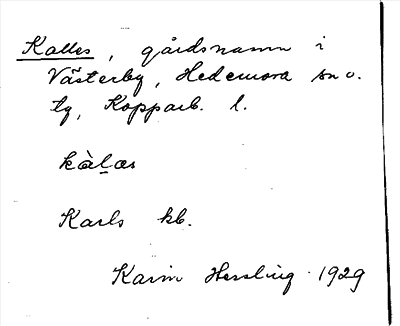 Kalles, gårdsnamn i
Västerby, Hedemora sn o.
tg, Kopparb. l.
kàlæs
Karls kb.
Karin Hessling 1929